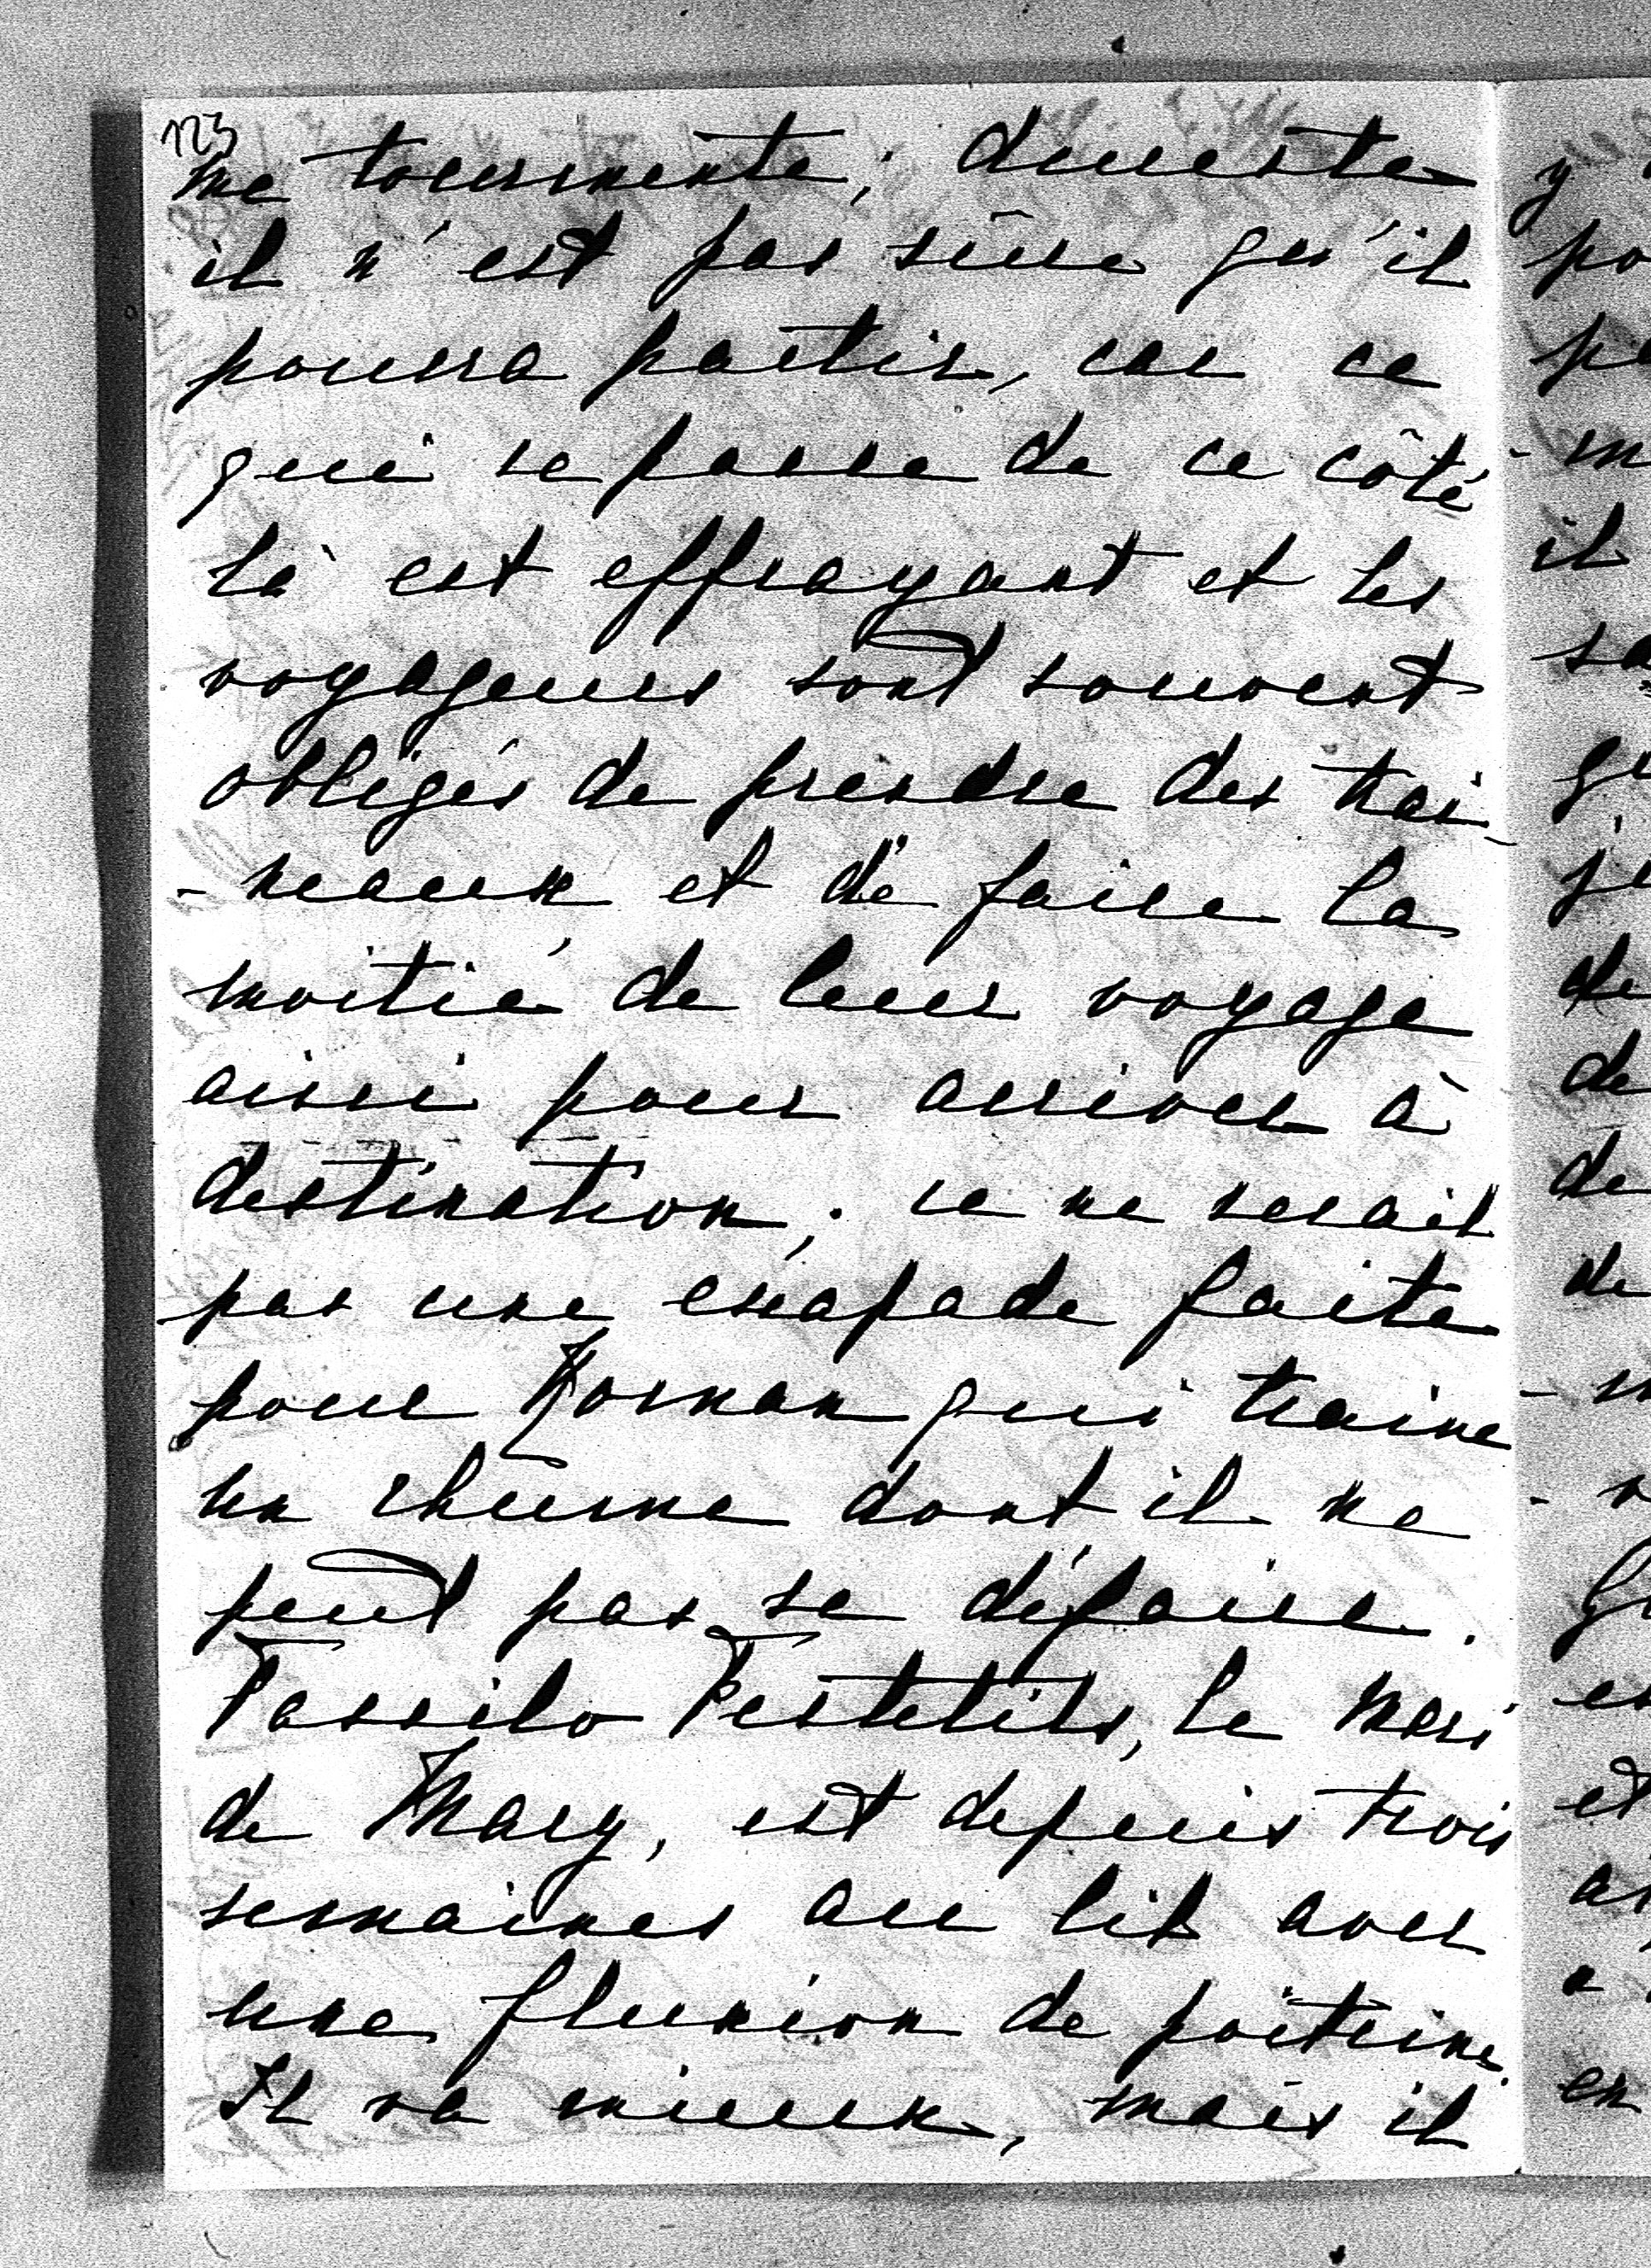 123
me tourmente; du reste
il n'est pas sûre qu'il
pourra partir, car ce
qui se passe de ce côté
là est effrayant et les
voyageurs sont souvent
obligés de prendre des trai-
-neaux et de faire la
moitié de leur voyage
ainsi pour arriver à
destination; ce ne serait
pas une escapade faite
pour Roman qui traine
un rhûme dont il ne
peut pas se défaire.
Tassilo Festetits, le mari
de Mary, est depuis trois
semaines au lit avec
une fluxion de poitrine.
Il va mieux, mais il